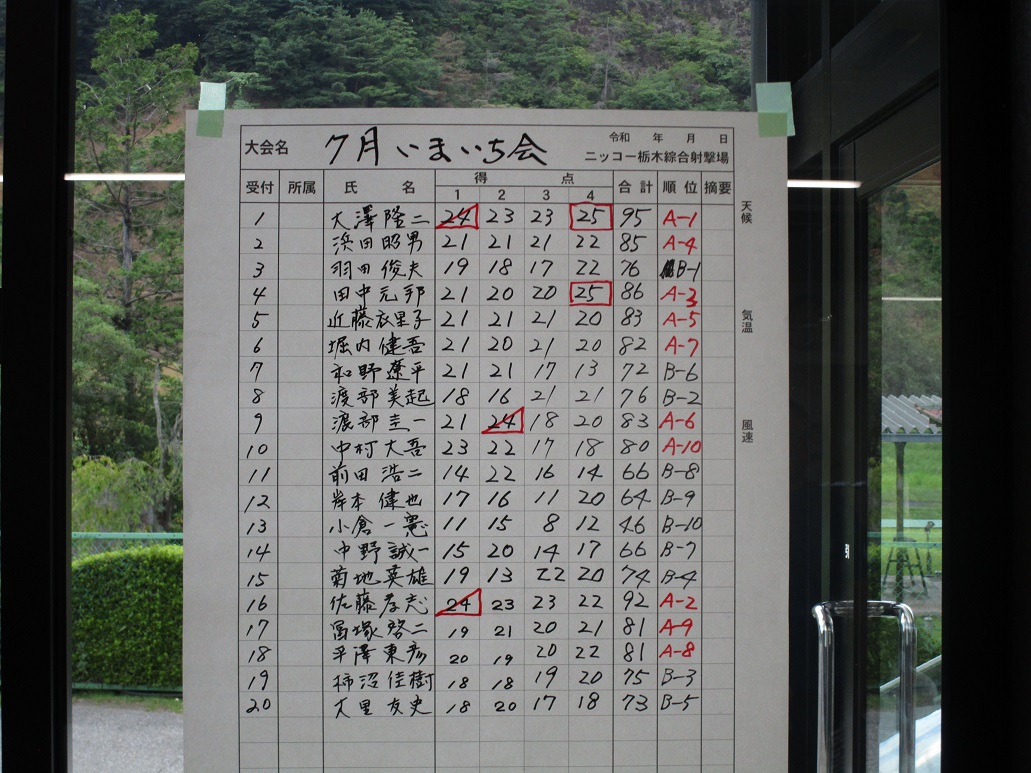 令和 年 月 日
大会名 7月 いまいち会 ニッコー栃木綜合射撃場
受付 所属 氏名 得点 合計 順位 摘要
1 2 3 4
1 大澤隆二 24 23 23 25 95 A-1
2 浜田昭男 21 21 21 22 85 A-4
3 羽田俊夫 19 18 17 22 76 B-1
4 田中元邦 21 20 20 25 86 A-3
5 近藤衣里子 21 21 21 20 83 A-5
6 堀内健吾 21 20 21 20 82 A-7
7 和野遼平 21 21 17 13 72 B-6
8 渡部美起 18 16 21 21 76 B-2
9 渡部圭一 21 24 18 20 83 A-6
10 中村大吾 23 22 17 18 80 A-10
11 前田浩二 14 22 16 14 66 B-8
12 岸本健也 17 16 11 20 64 B-9
13 小倉一憲 11 15 8 12 46 B-10
14 中野誠一 15 20 14 17 66 B-7
15 菊地英雄 19 13 22 20 74 B-4
16 佐藤孝志 24 23 23 22 92 A-2
17 冨塚啓二 19 21 20 21 81 A-9
18 平澤東彦 20 19 20 22 81 A-8
19 柿沼佳樹 18 18 19 20 75 B-3
20 大里友史 18 20 17 18 73 B-5
天候
気温
風速